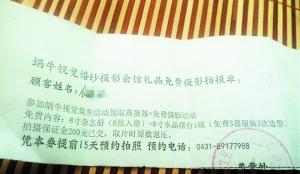 蜗牛视觉婚纱摄影会馆礼品免费摄影拍摄单:
顾客姓名:
参加蜗牛视觉集赞活动领取蒸蛋器+免费摄影活动
免费内容:8寸杂志册(8张入册)+8寸水晶摆台1幅(免费3册服装3次造型)
拍摄保证金200元已交,取片时原数退还。
凭本券提前15天预约拍照 预约电话:0431-89177988